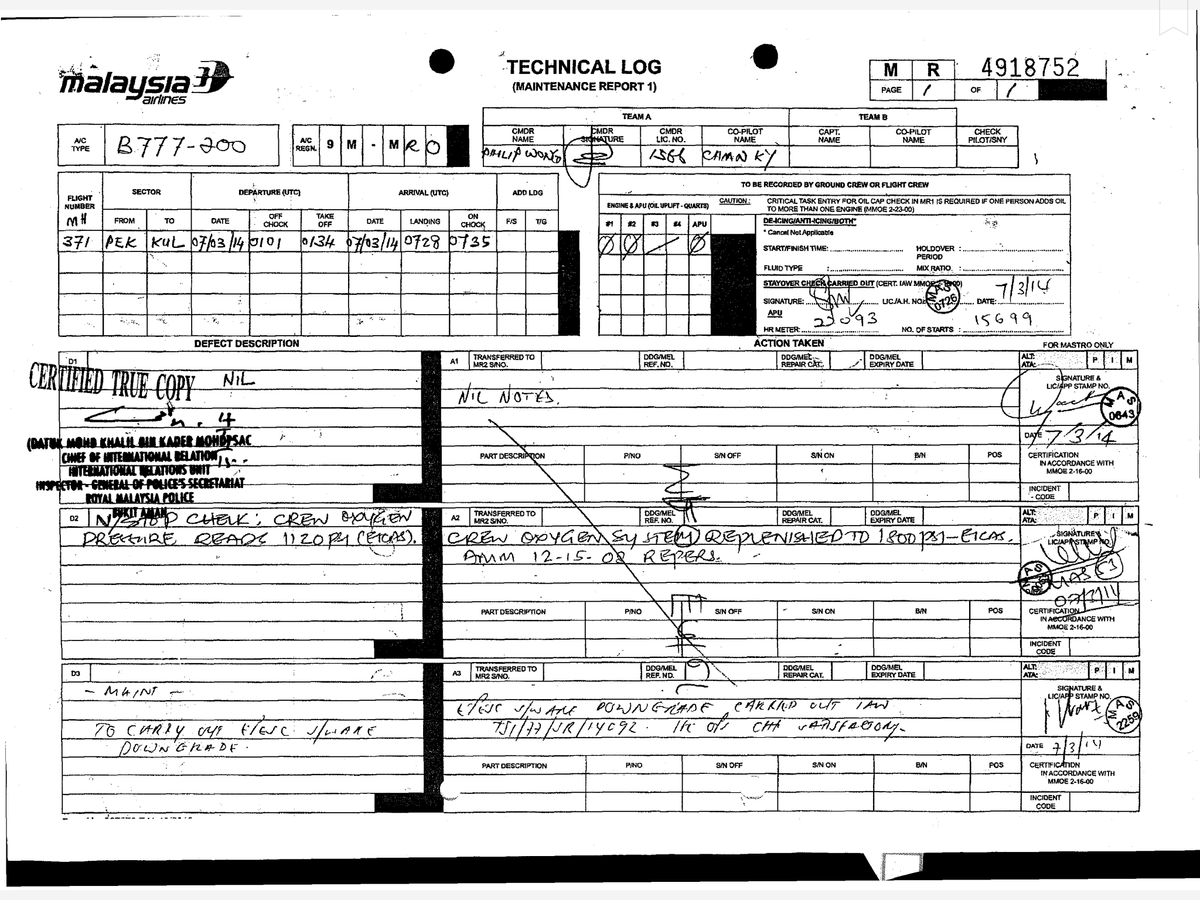 malaysia
airlines
TECHNICAL LOG
(MAINTENANCE REPORT 1)
M R 4918752
PAGE 1 OF 1
A/C TYPE B777-200
A/C REGN. 9 M - M R O
TEAM A TEAM B
CMDR NAME CMDR SIGNATURE CMDR LIC. NO. CO-PILOT NAME CAPT. NAME CO-PILOT NAME CHECK PILOT/SNY
PHILIP WONG 1566 CHAN KY
FLIGHT NUMBER SECTOR DEPARTURE (UTC) ARRIVAL (UTC) ADD LDG
MH FROM TO DATE OFF CHOCK TAKE OFF DATE LANDING ON CHOCK F/S T/G
371 PEK KUL 07/03/14 0101 0134 07/03/14 0728 0735
TO BE RECORDED BY GROUND CREW OR FLIGHT CREW
ENGINE & APU (OIL UPLIFT - QUARTS)
#1 #2 #3 #4 APU
Ø Ø / Ø
CAUTION : CRITICAL TASK ENTRY FOR OIL CAP CHECK IN MR1 IS REQUIRED IF ONE PERSON ADDS OIL
TO MORE THAN ONE ENGINE (MMOE 2-23-00)
DE-ICING/ANTI-ICING/BOTH*
* Cancel Not Applicable
START/FINISH TIME: HOLDOVER PERIOD :
FLUID TYPE : MIX RATIO :
STAYOVER CHECK CARRIED OUT (CERT. IAW MMOE
SIGNATURE: LIC/A.H. NO: MAS 0726 DATE: 7/3/14
APU
HR METER: 22093 NO. OF STARTS : 15699
DEFECT DESCRIPTION ACTION TAKEN FOR MASTRO ONLY
D1
NIL
CERTIFIED TRUE COPY
(DATUK MOHD KHALIL BIN KADER MOHD)
CHIEF OF INTERNATIONAL RELATION
INTERNATIONAL RELATIONS UNIT
INSPECTOR - GENERAL OF POLICE'S SECRETARIAT
ROYAL MALAYSIA POLICE
BUKIT AMAN
A1 TRANSFERRED TO MR2 S/NO. DDG/MEL REF. NO. DDG/MEL REPAIR CAT. DDG/MEL EXPIRY DATE
NIL NOTES.
PART DESCRIPTION P/NO S/N OFF S/N ON B/N POS
ALT: ATA: P I M
SIGNATURE & LIC/APP STAMP NO.
MAS 0643
DATE 7/3/14
CERTIFICATION IN ACCORDANCE WITH MMOE 2-16-00
INCIDENT - CODE
D2 N/STOP CHECK; CREW OXYGEN
PRESSURE READS 1120 PSI (EICAS).
A2 TRANSFERRED TO MR2 S/NO. DDG/MEL REF. NO. DDG/MEL REPAIR CAT. DDG/MEL EXPIRY DATE
CREW OXYGEN SYSTEM REPLENISHED TO 1800 PSI-EICAS.
AMM 12-15-08 REFERS.
PART DESCRIPTION P/NO S/N OFF S/N ON B/N POS
ALT: ATA: P I M
SIGNATURE & LIC/APP STAMP NO.
MAS 53
CERTIFICATION IN ACCORDANCE WITH MMOE 2-16-00
INCIDENT CODE
D3
- MAINT -
TO CARRY OUT S/WARE
DOWNGRADE.
A3 TRANSFERRED TO MR2 S/NO. DDG/MEL REF. NO. DDG/MEL REPAIR CAT. DDG/MEL EXPIRY DATE
S/WARE DOWNGRADE CARRIED OUT IAW
SATISFACTORY.
PART DESCRIPTION P/NO S/N OFF S/N ON B/N POS
ALT: ATA: P I M
SIGNATURE & LIC/APP STAMP NO.
MAS 2259
DATE 7/3/14
CERTIFICATION IN ACCORDANCE WITH MMOE 2-16-00
INCIDENT CODE